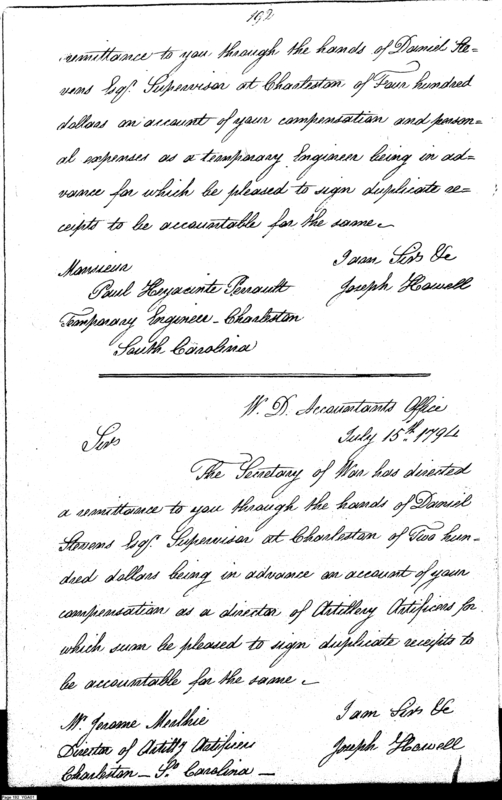 192
remittance to you through the hands of Daniel Ste=
vens Esqr. Supervisor at Charleston of Four hundred
dollars on account of your compensation and person-
al expenses as a temporary Engineer being in ad=
vance for which be pleased to sign duplicate re=
ceipts to be accountable for the same.
I am Sir &c
Monsieur
Paul Heyacinte Perrault
Joseph Howell
Temporary Engineer - Charleston
South Carolina
W. D. Accountants Office
July 15th. 1794
Sir
The Secretary of War has directed
a remittance to you through the hands of Daniel
Stevens Esqr. Supervisor at Charleston of Two hun-
dred dollars being in advance on account of your
compensation as a director of Artillery Artificers for
which sum be pleased to sign duplicate receipts to
be accountable for the same.
I am Sir &c
Mr. Jerome
Director of Artilly Artificers
Joseph Howell
Charleston - So. Carolina -